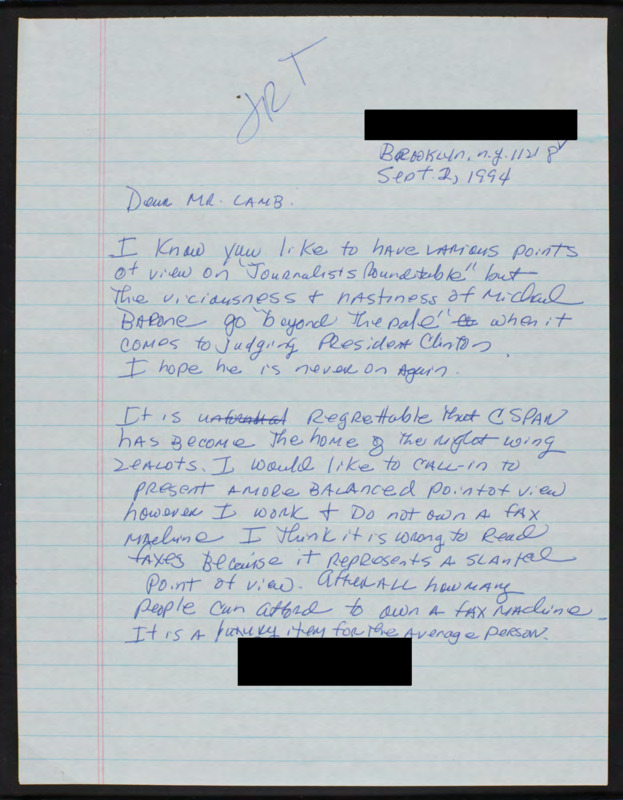 JRT
Brooklyn, n.y. 11218
Sept. 2, 1994
Dear MR. LAMB.
I Know you like to have various points
of view on "Journalists Roundtable" but
the viciousness + nastiness of Michael
Barone go "beyond the pale" when it
comes to judging President Clinton.
I hope he is never on Again.
It is Regrettable that CSPAN
has become the home of the right wing
zealots. I would like to call-in to
present a more balanced point of view
however I work + Do not own a fax
machine I think it is wrong to Read
faxes because it represents a slanted
point of view. After all how many
people can afford to own a fax machine -
It is a luxury item for the average person.